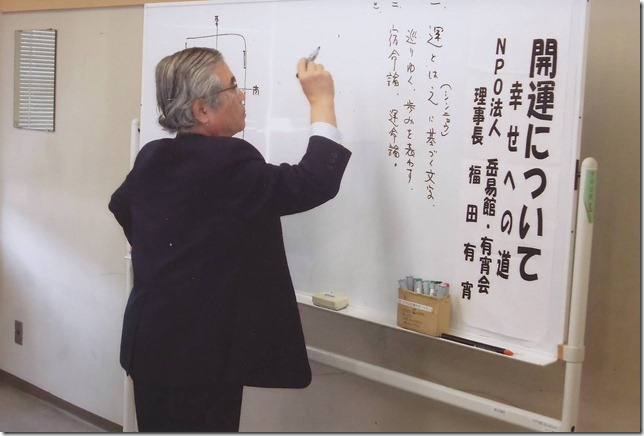 開運について
幸せへの道
NPO法人 岳易館・有宵会
理事長 福田有宵
一、運とは辶に基づく文字、
(シンニョウ)
巡りゆく、歩みを表わす。
二、宿命論、運命論。
南